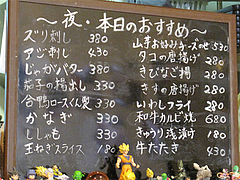 ～夜・本日のおすすめ～
ズリ刺し 380
アジ刺し 430
じゃがバター 380
茄子の揚出し 330
合鴨ロースくん製 330
かなぎ 330
ししゃも 330
玉ねぎスライス 180
山芋お好みケーズ 530
タコの唐揚げ 280
きびなご揚 280
きすの唐揚げ 280
いわしフライ 280
和牛カルビ焼 680
きゅうり浅漬け 180
牛たたき 430